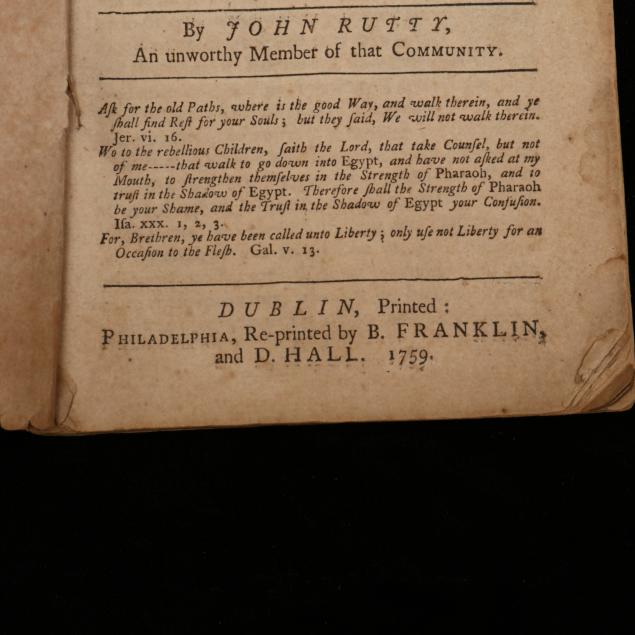 By JOHN RUTTY,
An unworthy Member of that COMMUNITY.
Aſk for the old Paths, where is the good Way, and walk therein, and ye
ſhall find Reſt for your Souls; but they ſaid, We will not walk therein.
Jer. vi. 16.
Wo to the rebellious Children, ſaith the Lord, that take Counſel, but not
of me-----that walk to go down into Egypt, and have not aſked at my
Mouth, to ſtrengthen themſelves in the Strength of Pharaoh, and to
truſt in the Shadow of Egypt. Therefore ſhall the Strength of Pharaoh
be your Shame, and the Truſt in the Shadow of Egypt your Confuſion.
Iſa. xxx. 1, 2, 3.
For, Brethren, ye have been called unto Liberty; only uſe not Liberty for an
Occaſion to the Fleſh. Gal. v. 13.
DUBLIN, Printed:
PHILADELPHIA, Re-printed by B. FRANKLIN,
and D. HALL. 1759.